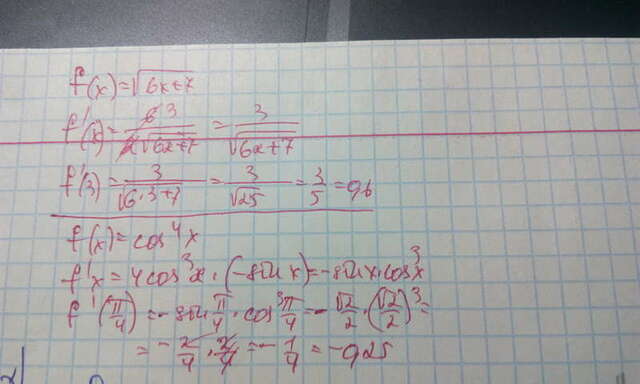 f(x)=√(6x+7)
f'(x)=6̸ 3/(2̸√(6x+7))=3/√(6x+7)
f'(3)=3/√(6·3+7)=3/√25=3/5=0,6
f(x)=cos⁴x
f'x=4cos³x·(-sin x)=-sin x·cos³x
f'(π/4)=-sin π/4·cos³ π/4=-√2/2·(√2/2)³=
=-2/4·2/4=-1/4=-0,25